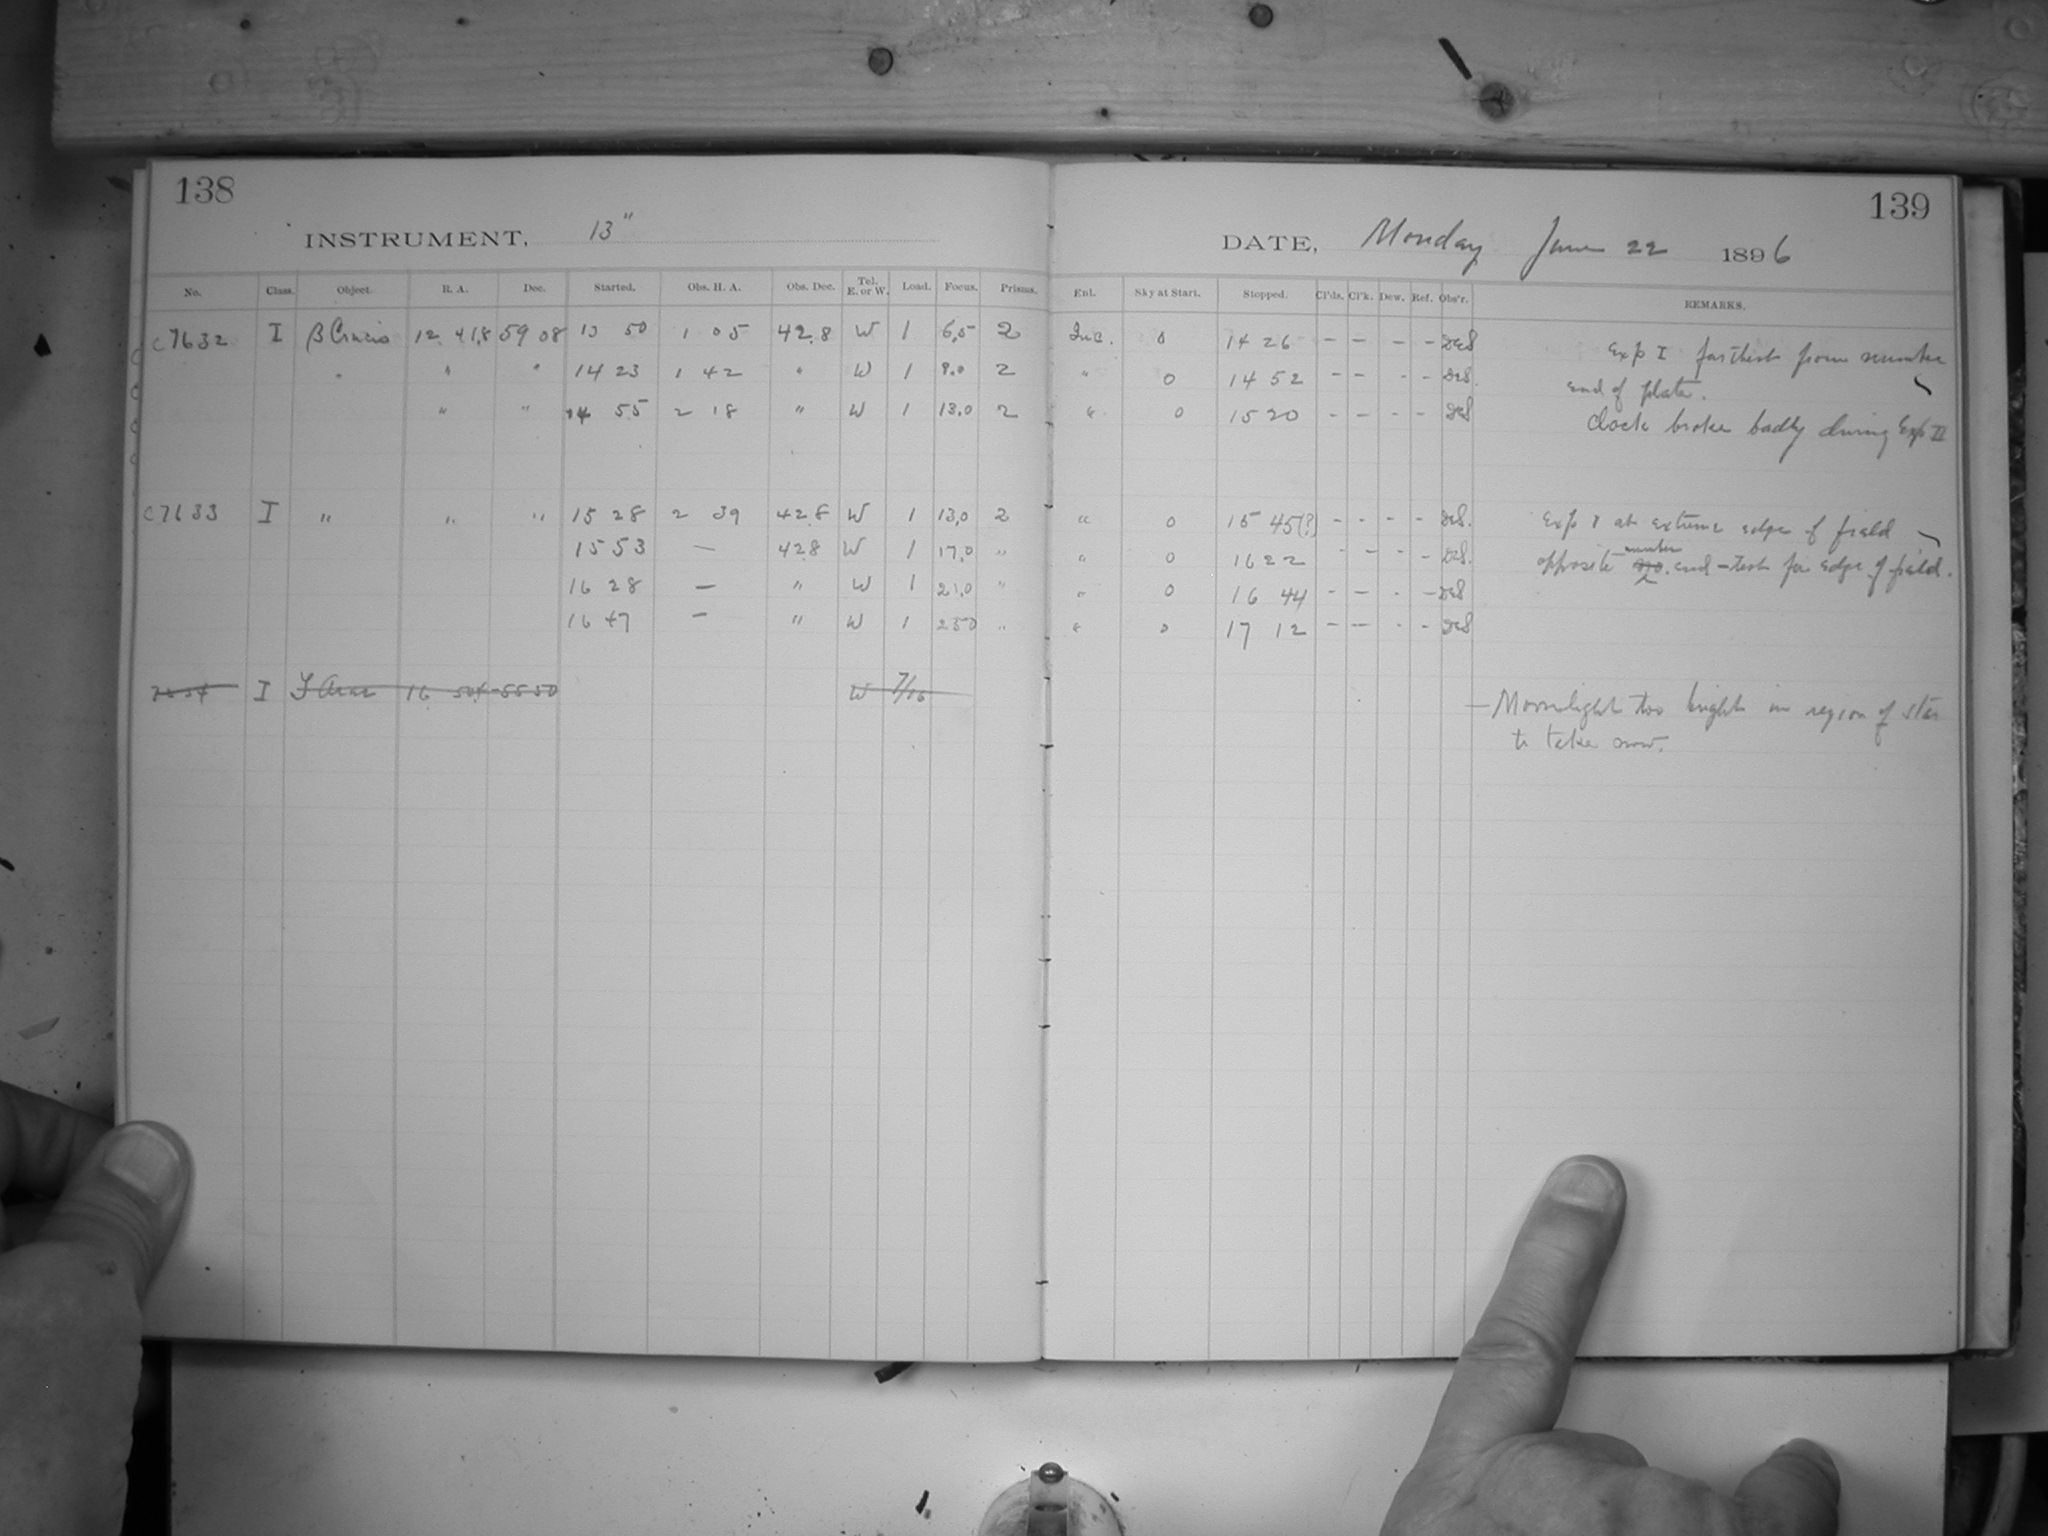 138
139
INSTRUMENT, 13"
DATE, Monday June 22 1896
No. Class. Object. R. A. Dec. Started. Obs. H. A. Obs. Dec. Tel. E. or W. Load. Focus. Prisms. Enl. Sky at Start. Stopped. Cl'ds. Cl'k. Dew. Ref. Obs'r. REMARKS.
c7632 I β Crucis 12 41.8 59 08 13 50 1 05 42.8 W 1 6.5 2 Inc. 0 14 26 - - - - DES Exp I farthest from number
" " " 14 23 1 42 " W 1 9.0 2 " 0 14 52 - - - - DES. end of plate.
" " 14 55 2 18 " W 1 13.0 2 " 0 15 20 - - - - DES Clock broke badly during Exp II
c7633 I " " " 15 28 2 39 42.8 W 1 13.0 2 " 0 15 45(?) - - - - DES. Exp I at extreme edge of field
15 53 — 42.8 W 1 17.0 " " 0 16 22 - - - - DES. opposite number end - test for edge of field.
16 28 — " W 1 21.0 " " 0 16 44 - - - - DES
16 47 — " W 1 25.0 " " 0 17 12 - - - - DES
I Arae 16 50.4 -55 50 W 7/16 — Moonlight too bright in region of star
to take now.